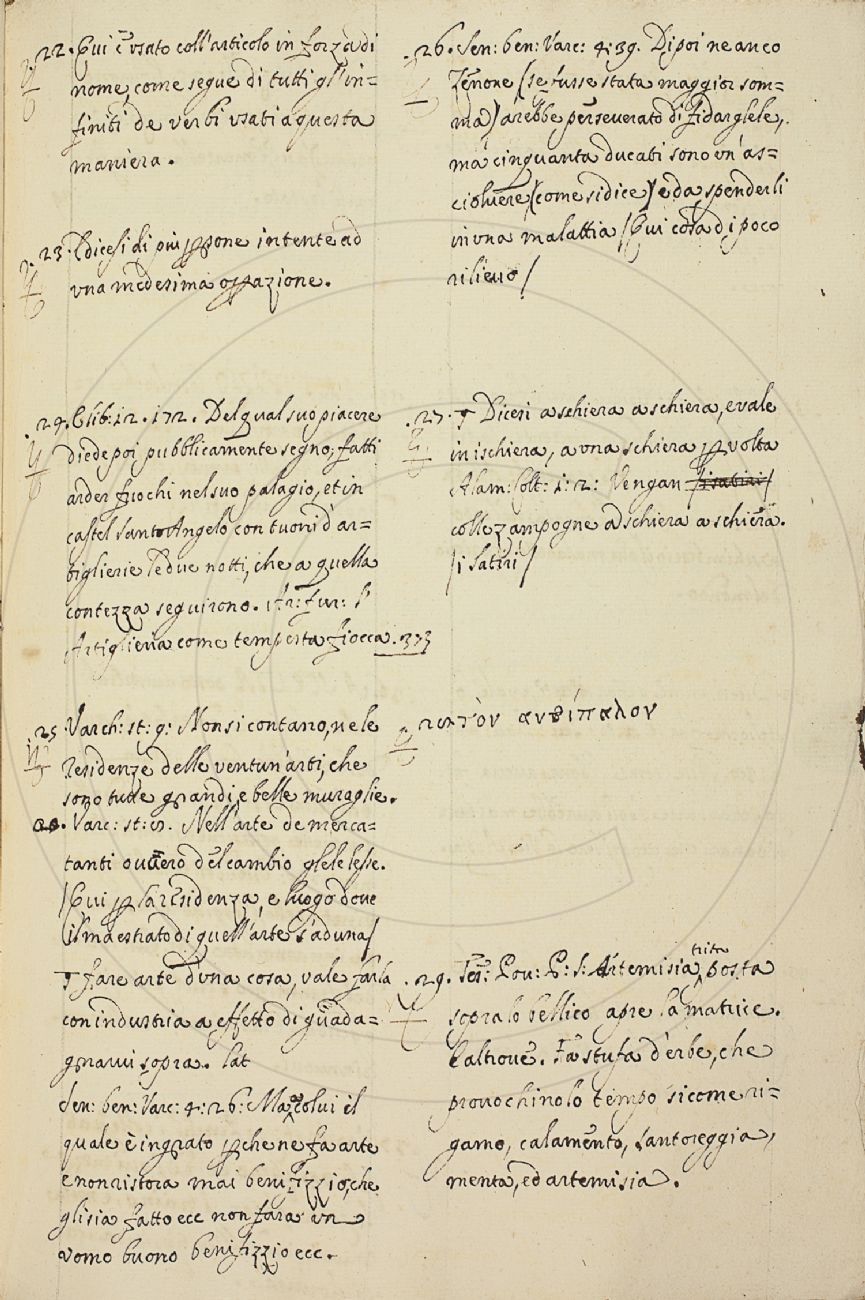 22. Qui è usato coll'articolo in forza di
nome, come segue di tutti gl'in=
finiti de verbi usati a questa
maniera.
23. Edicesi di più ꝑsone intente ad
una medesima oꝑazione.
24. E lib: 12. 172. Del qual suo piacere
diede poi pubblicamente segno, fatti
arder fuochi nel suo palagio, et in
castel Santo Angelo con tuoni d'ar=
tiglierie le due notti, che a quella
contezza seguirono. Ar: fur:
Artiglieria come tempesta fiocca. 373
25. Varch: st: 9: Non si contano, ne le
residenze delle ventun'arti, che
sono tutte grandi, e belle muraglie.
Varc: st: Nell'arte de merca=
tanti ovvero del cambio glele lesse.
/Qui ꝑ la residenza, e luogo dove
il maestrato di quell'arte s'aduna/
¶ fare arte d'una cosa, vale farla
con industria a effetto di guada=
gnarvi sopra. Lat
Sen: ben: Varc: 4: 26: Ma a colui il
quale è ingrato ꝑche ne fa arte
e non ristora mai benifizzio, che
gli sia fatto ecc non farà un
uomo buono benifizzio ecc.
26. Sen: ben: Varc: 4: 39. Dipoi ne anco
Zenone (se fusse stata maggior som=
ma) arebbe perseverato di fidarglele,
ma cinquanta ducati sono un'as=
ciolvere (come si dice) e da spenderli
in una malattia /Qui cosa di poco
rilievo/
27. ¶ Dicesi a schiera a schiera, e vale
in ischiera, a una schiera ꝑ volta
Alam: Colt: 1: 2: Vengan /i satiri/
colle zampogne a schiera a schiera.
/i Satiri/
ἀντίπαλον
29. Tes: Pov: P: S: Artemisia trita posta
sopra lo bellico apre la matrice.
E altrove. Fa stufa d'erbe, che
provochino lo tempo, sicome ri=
gamo, calamento, santoreggia,
menta, ed artemisia.